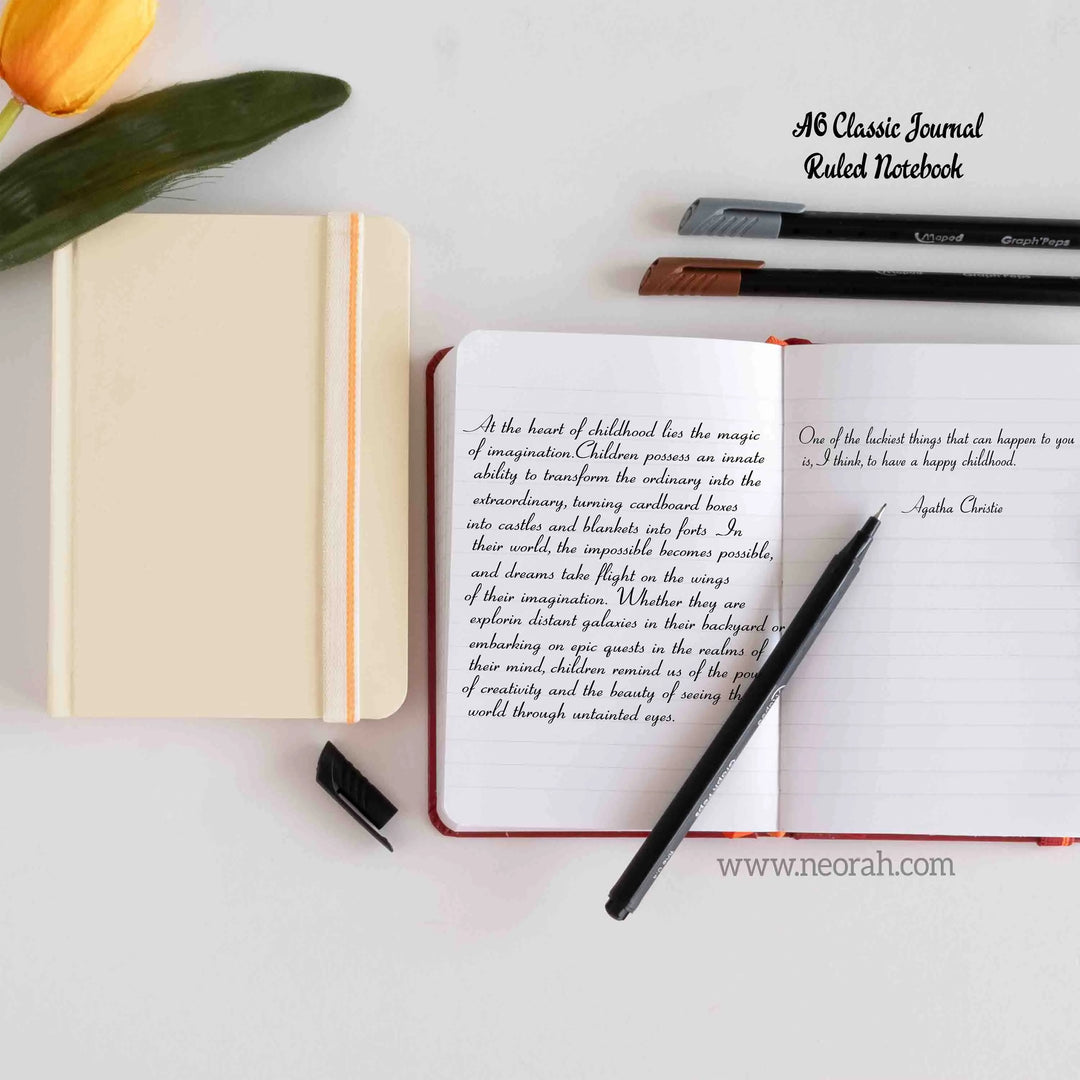 A6 Classic Journal
Ruled Notebook
Maped Graph'Peps
Maped Graph'Peps
At the heart of childhood lies the magic
of imagination.Children possess an innate
ability to transform the ordinary into the
extraordinary, turning cardboard boxes
into castles and blankets into forts In
their world, the impossible becomes possible,
and dreams take flight on the wings
of their imagination. Whether they are
explorin distant galaxies in their backyard or
embarking on epic quests in the realms of
their mind, children remind us of the
of creativity and the beauty of seeing
world through untainted eyes.
One of the luckiest things that can happen to you
is, I think, to have a happy childhood.
Agatha Christie
Graph'Peps
www.neorah.com